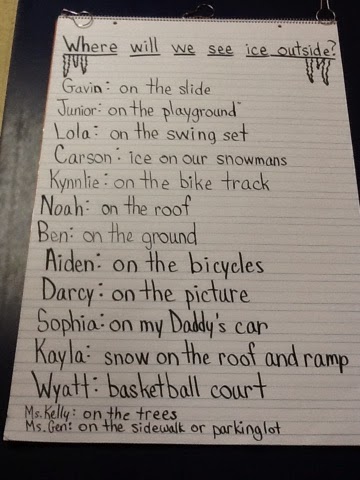 Where will we see ice outside?
Gavin: on the slide
Junior: on the playground
Lola: on the swing set
Carson: ice on our snowmans
Kynnlie: on the bike track
Noah: on the roof
Ben: on the ground
Aiden: on the bicycles
Darcy: on the picture
Sophia: on my Daddy's car
Kayla: snow on the roof and ramp
Wyatt: basketball court
Ms. Kelly: on the trees
Ms. Gen: on the sidewalk or parkinglot